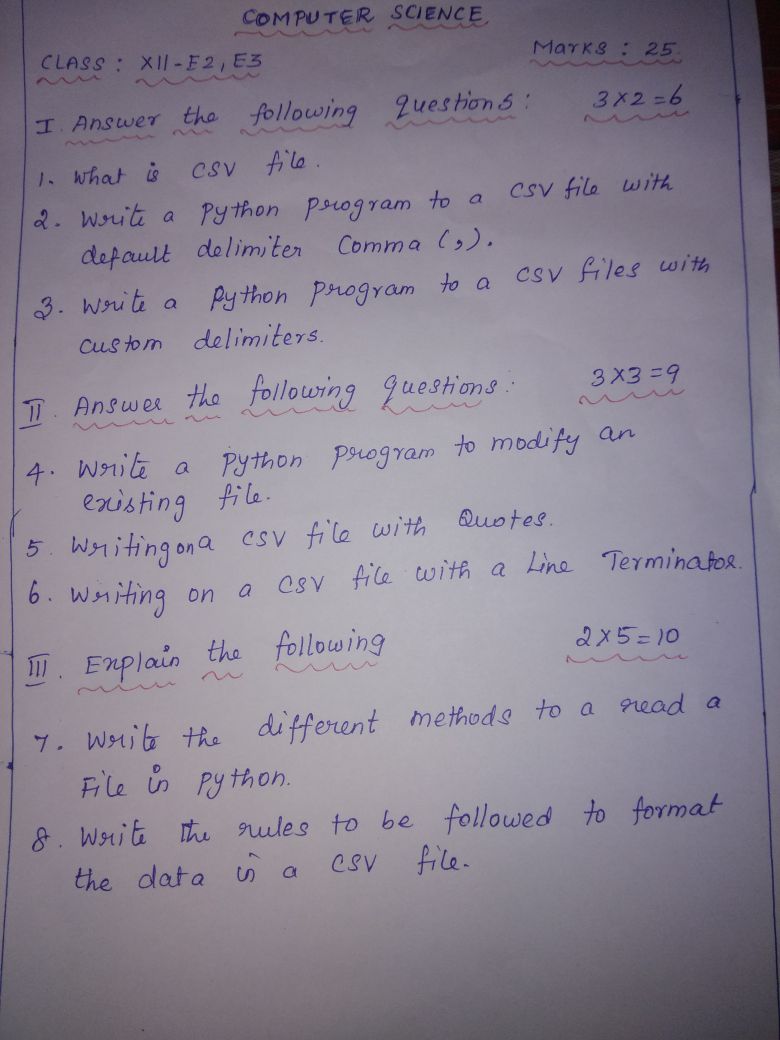 COMPUTER SCIENCE
CLASS : XII-E2, E3
Marks : 25.
I. Answer the following questions : 3x2=6
1. What is CSV file.
2. Write a Python program to a CSV file with
default delimiter Comma (,).
3. Write a Python program to a CSV files with
custom delimiters.
II. Answer the following questions : 3x3=9
4. Write a Python program to modify an
existing file.
5. Writing on a CSV file with Quotes.
6. Writing on a CSV file with a Line Terminator.
III. Explain the following 2x5=10
7. Write the different methods to a read a
File in python.
8. Write the rules to be followed to format
the data in a CSV file.